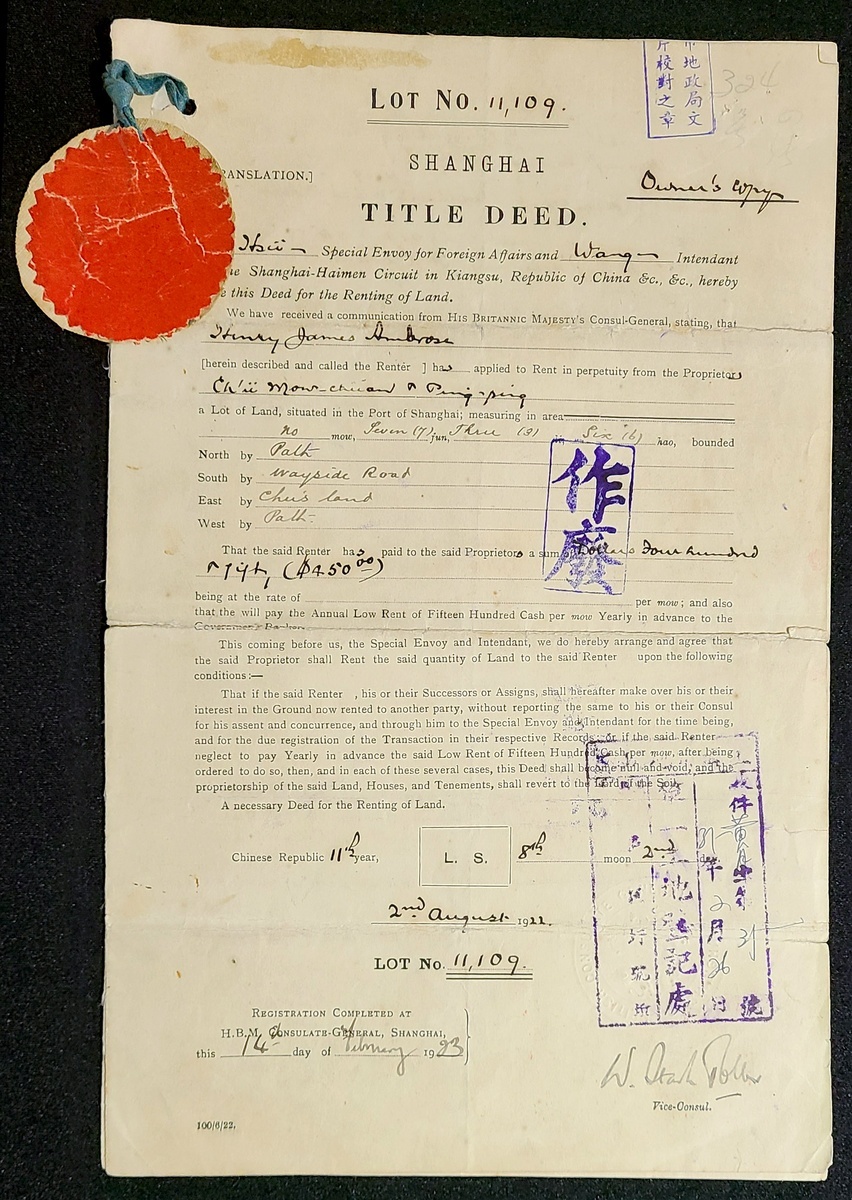 市地政局文
件校對之章
324
LOT No. 11,109.
SHANGHAI
RANSLATION.]
Owner's Copy
TITLE DEED.
Hsü Special Envoy for Foreign Affairs and Wang Intendant
e Shanghai-Haimen Circuit in Kiangsu, Republic of China &c., &c., hereby
e this Deed for the Renting of Land.
We have received a communication from HIS BRITANNIC MAJESTY'S Consul-General, stating, that
Henry James Ambrose
[herein described and called the Renter ] has applied to Rent in perpetuity from the Proprietors
Ch'ü Mow-chuan & Ping-ping
a Lot of Land, situated in the Port of Shanghai; measuring in area
no mow, Seven (7) fun, Three (3) Six (6) hao, bounded
North by Path
South by Wayside Road
East by Chu's land
West by Path.
作廢
That the said Renter has paid to the said Proprietors a sum of Dollars Four hundred
& fifty ($450.00)
being at the rate of per mow; and also
that the will pay the Annual Low Rent of Fifteen Hundred Cash per mow Yearly in advance to the
Government Banker.
This coming before us, the Special Envoy and Intendant, we do hereby arrange and agree that
the said Proprietor shall Rent the said quantity of Land to the said Renter upon the following
conditions:—
That if the said Renter , his or their Successors or Assigns, shall hereafter make over his or their
interest in the Ground now rented to another party, without reporting the same to his or their Consul
for his assent and concurrence, and through him to the Special Envoy and Intendant for the time being,
and for the due registration of the Transaction in their respective Records; or if the said Renter
neglect to pay Yearly in advance the said Low Rent of Fifteen Hundred Cash per mow, after being
ordered to do so, then, and in each of these several cases, this Deed shall become null and void, and the
proprietorship of the said Land, Houses, and Tenements, shall revert to the Lord of the Soil.
A necessary Deed for the Renting of Land.
Chinese Republic 11th year, L. S. 8th moon 2nd day.
2nd August 1922.
LOT No. 11,109.
收件黃字第31號
31年2月26日
地登記處
REGISTRATION COMPLETED AT
H.B.M. CONSULATE-GENERAL, SHANGHAI,
this 14th day of February 1923
Vice-Consul.
100/6/22.